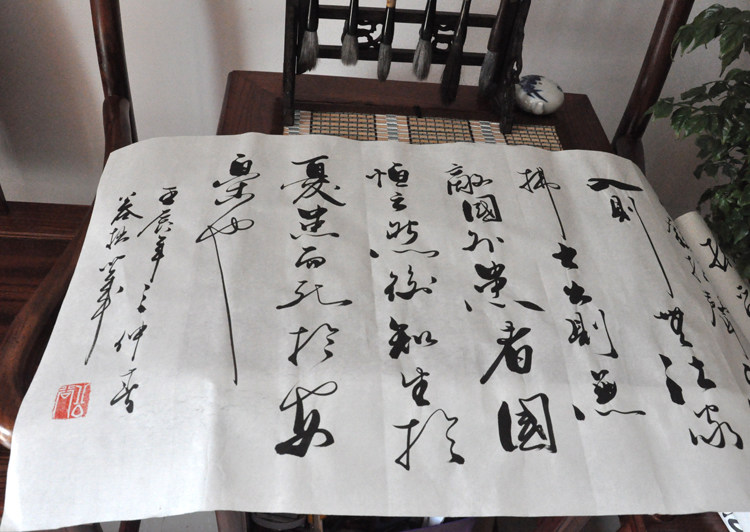 入則無法家
拂士出則無
敵國外患者國
恒亡然後知生於
憂患而死於安
樂也
壬辰年之仲春